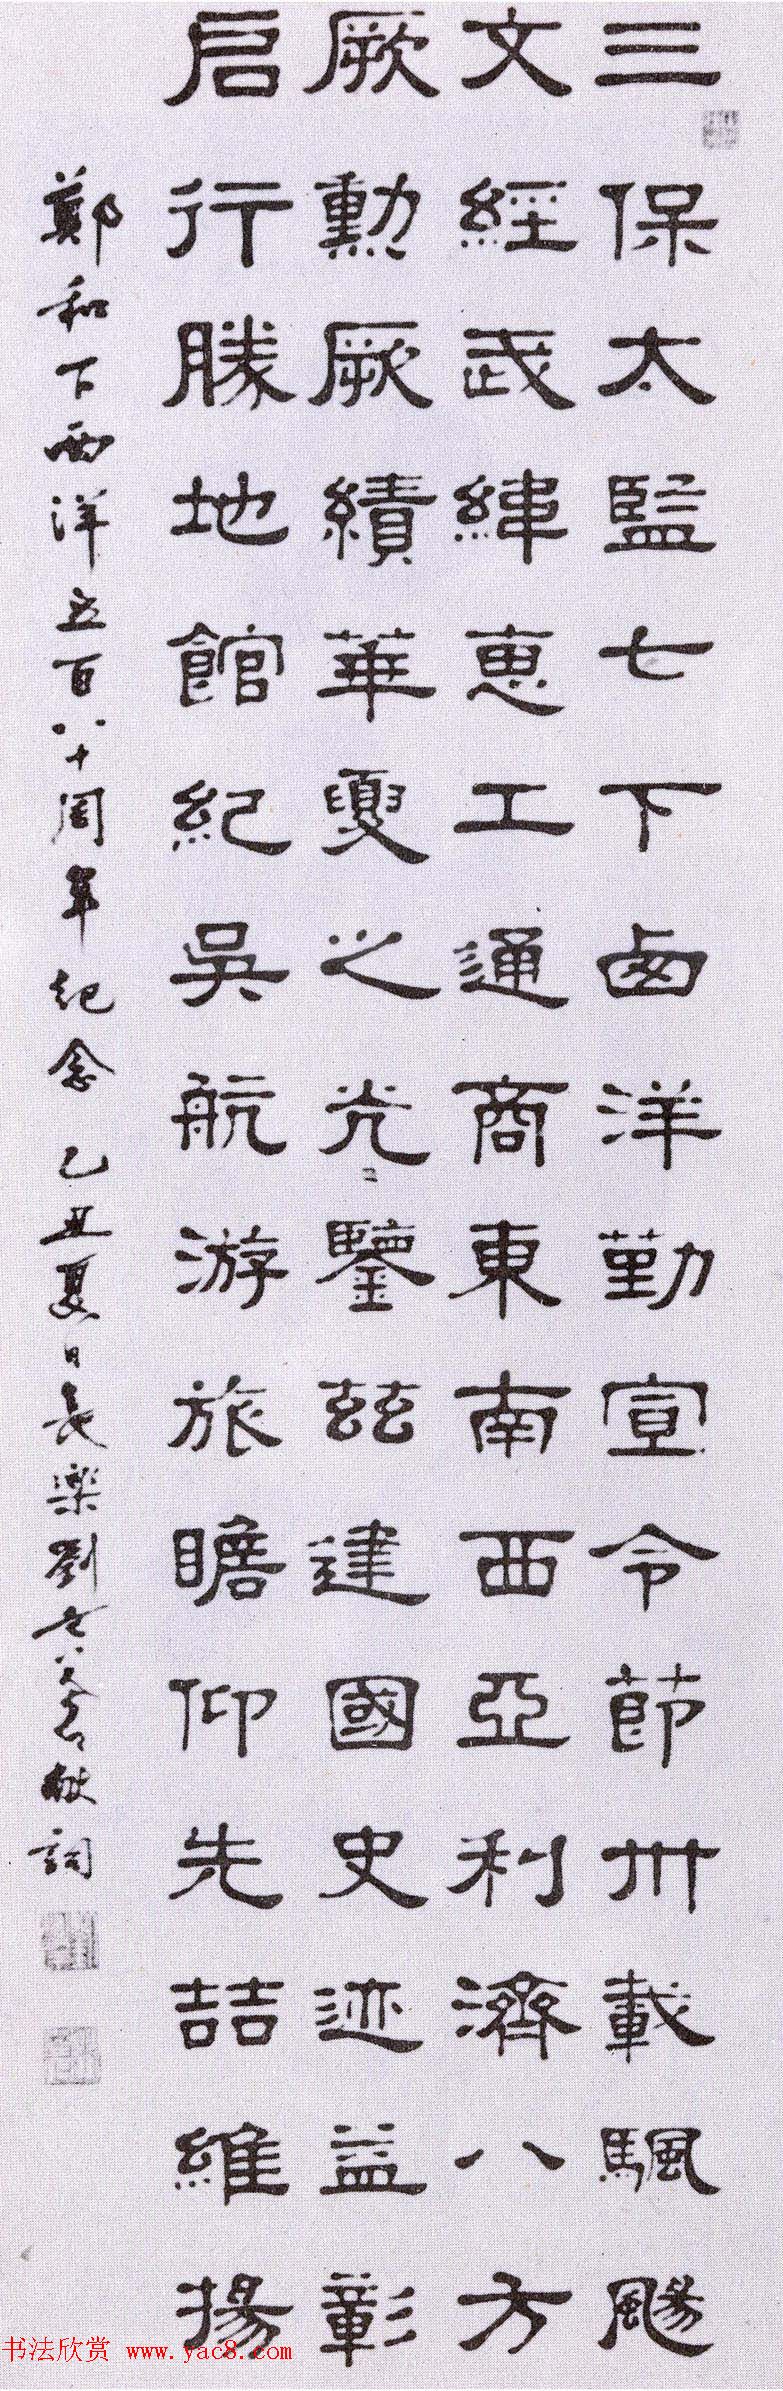 三保太監七下卥洋勤宣令節卅載颿颺
文經武緯恵工通商東南西亞利濟八方
厥勳厥績華夏之光〻鑒茲建國史迹益彰
启行勝地館紀吳航游旅瞻仰先喆維揚
鄭和下西洋五百八十周年紀念 乙丑夏日長樂劉老蒼獻詞
书法欣赏 www.yac8.com